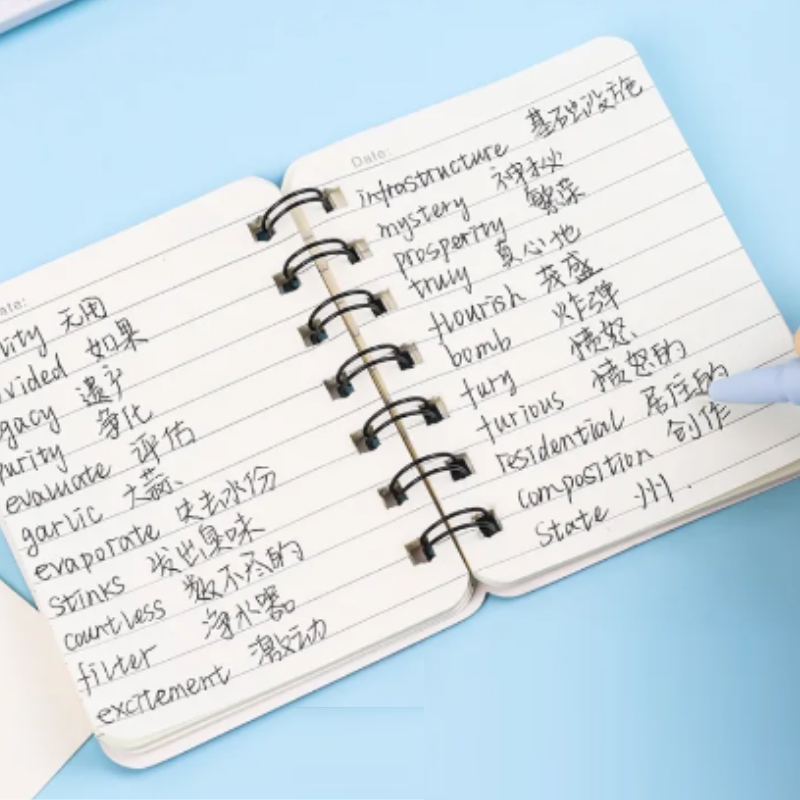 ate:
lity 无用
vided 如果
gacy 遗产
purity 净化
evaluate 评估
garlic 大蒜
evaporate 失去水份
stinks 发出臭味
countless 数不尽的
filter 净水器
excitement 激动
Date:
infrastructure 基础设施
mystery 神秘
prosperity 繁荣
truly 真心地
flourish 茂盛
bomb 炸弹
fury 愤怒
furious 愤怒的
residential 居住的
composition 创作
State 州.